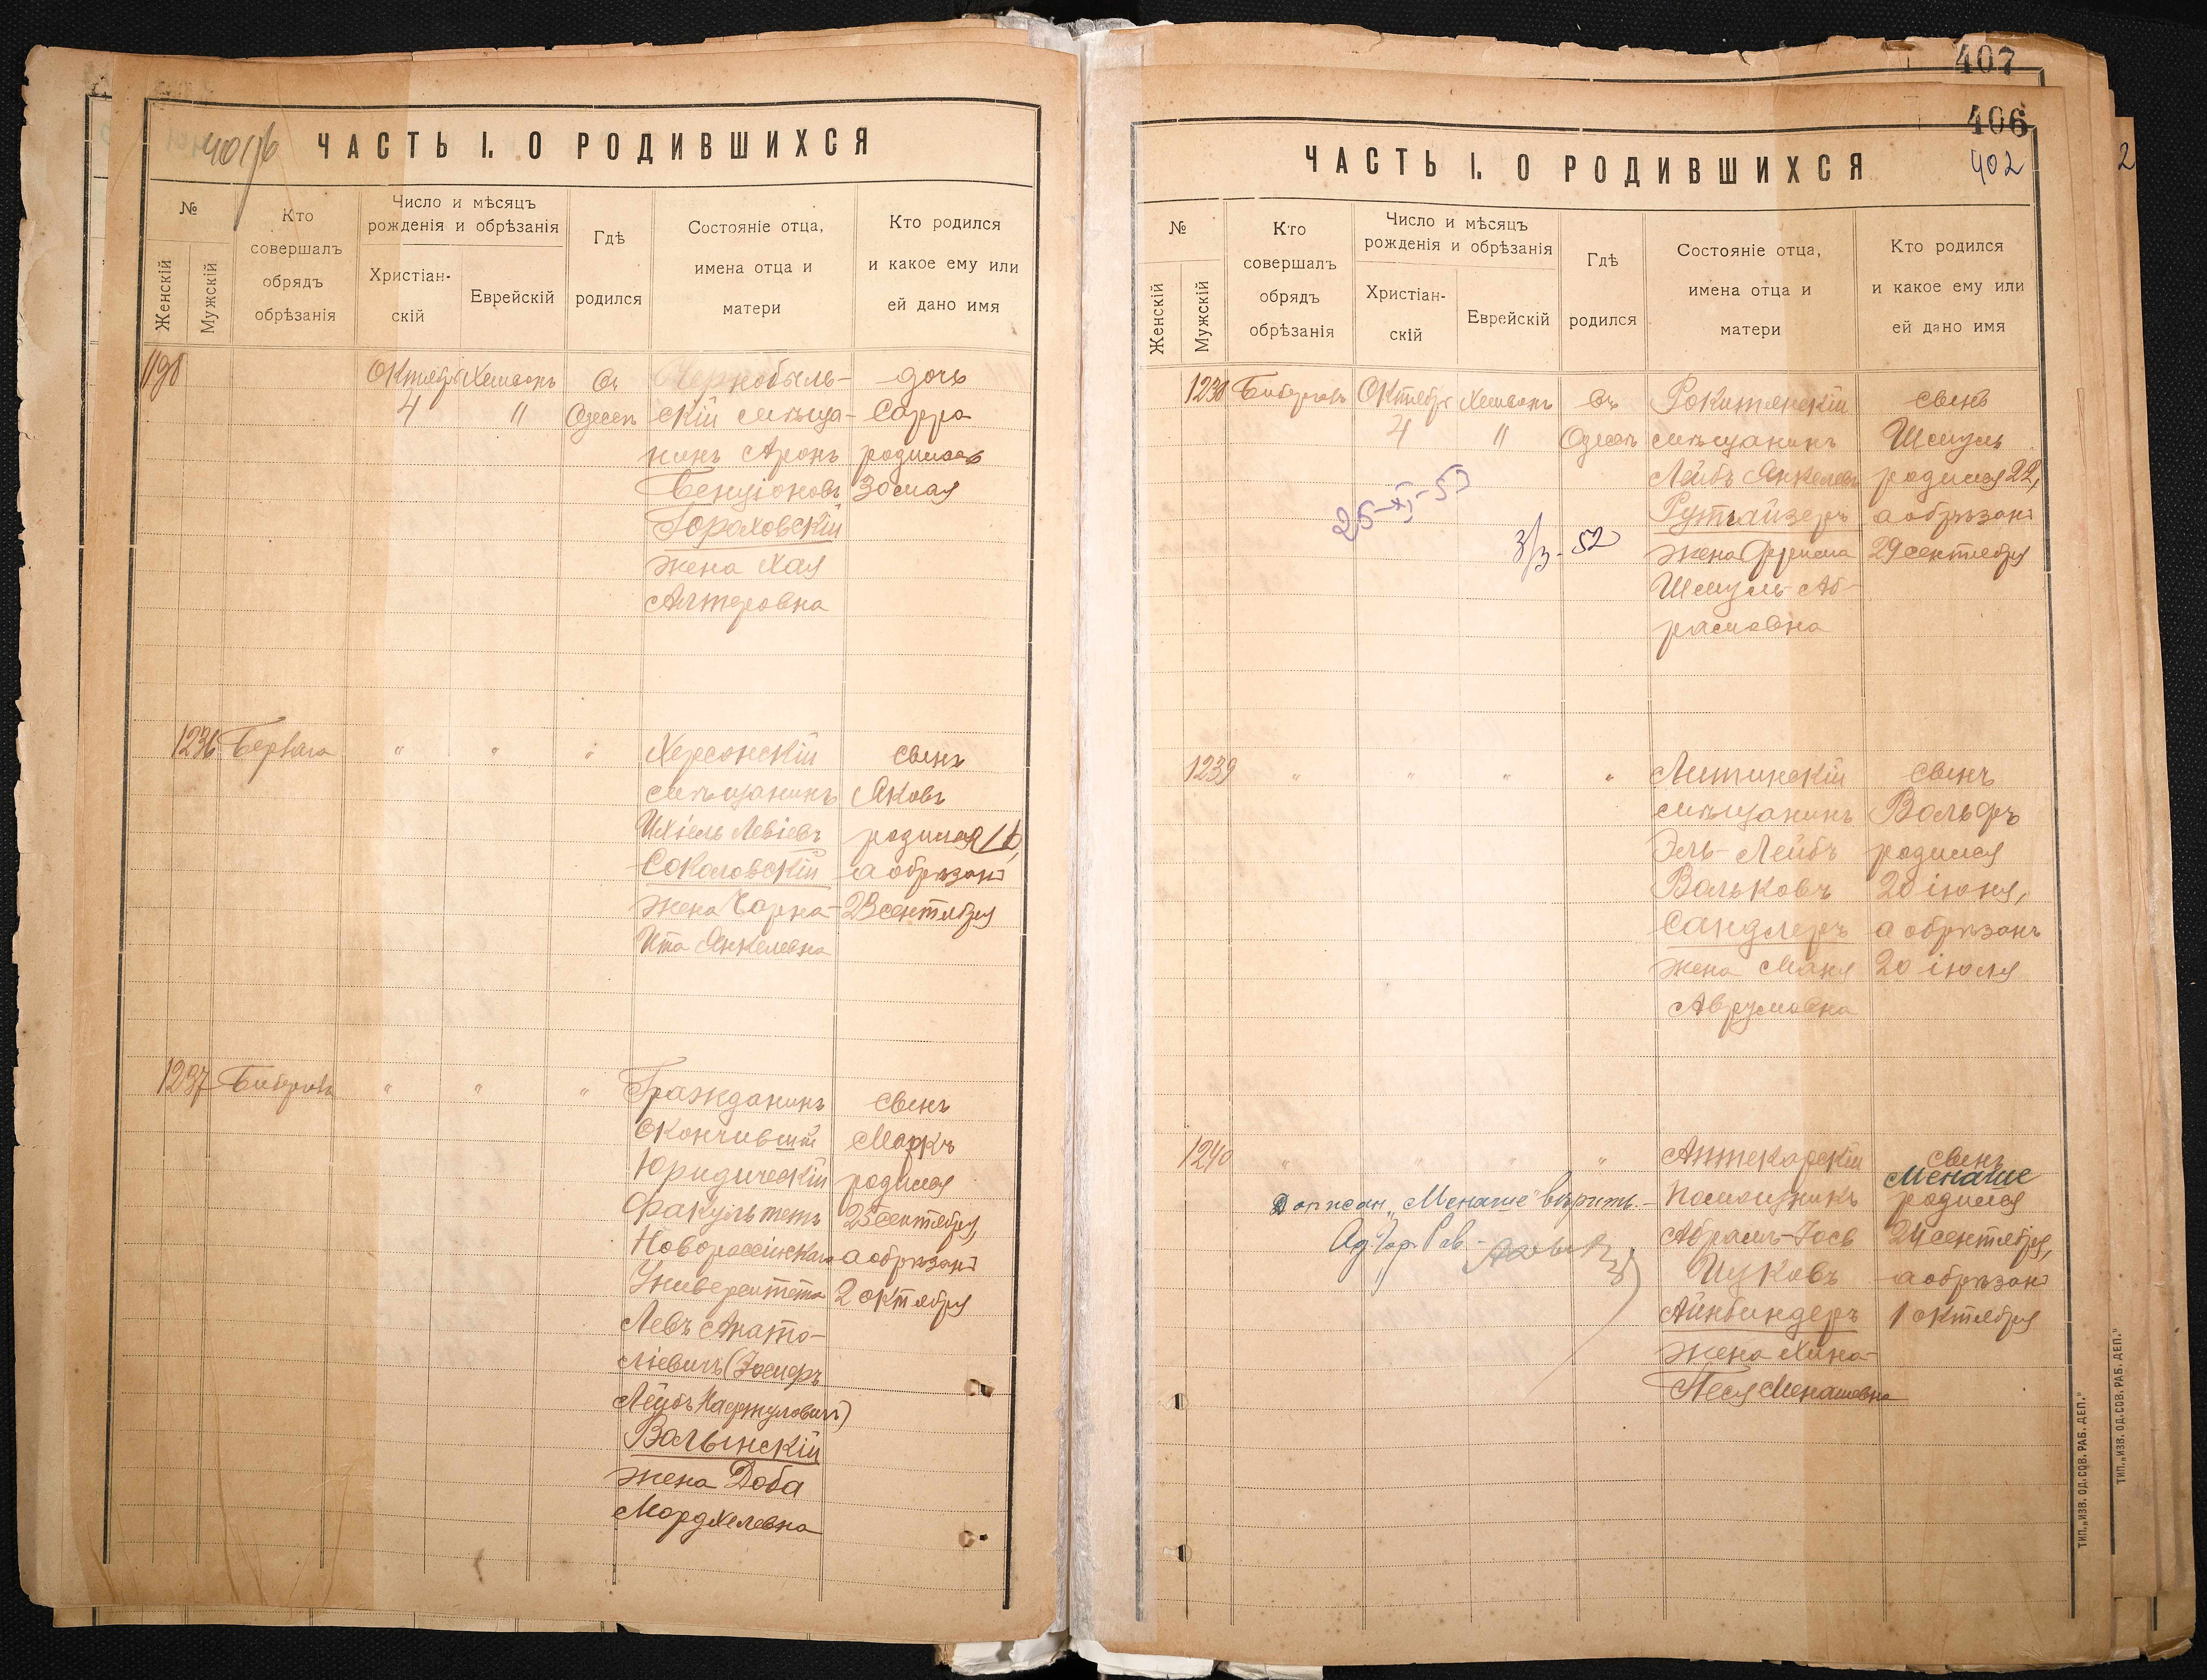 ЧАСТЬ I. О РОДИВШИХСЯ
№
Женскій
Мужскій
Кто
совершалъ
обрядъ
обрѣзанія
Число и мѣсяцъ
рожденія и обрѣзанія
Христіан-
скій
Еврейскій
Гдѣ
родился
Состояніе отца,
имена отца и
матери
Кто родился
и какое ему или
ей дано имя
1198
Октября
4
Хешвонъ
"
Въ
Одессѣ
Чернобыль-
скій мѣща-
нинъ Аронъ
Бенціоновъ
Гораховскій
жена Хая
Алтеровна
дочь
Сарра
родилась
30 мая
1236
"
"
"
Херсонскій
мѣщанинъ
Ихіель Левіевъ
Соколовскій
жена Чарна-
Ита Янкелевна
сынъ
Яковъ
родился 16,
а обрѣзанъ
23 сентября
1237
"
"
"
Гражданинъ
окончившій
Юридическій
Факультетъ
Новороссійскаго
Университета
Левъ Анато-
ліевичъ (Іосифъ
Лейбъ Нафтуловичъ)
Валынскій
жена Доба
Мордхелевна
сынъ
Маркъ
родился
25 сентября,
а обрѣзанъ
2 октября
407
406
402
2
ЧАСТЬ I. О РОДИВШИХСЯ
№
Женскій
Мужскій
Кто
совершалъ
обрядъ
обрѣзанія
Число и мѣсяцъ
рожденія и обрѣзанія
Христіан-
скій
Еврейскій
Гдѣ
родился
Состояніе отца,
имена отца и
матери
Кто родился
и какое ему или
ей дано имя
1238
Октября
4
Хешвонъ
"
Въ
Одессѣ
25-XI-53
3/3 - 52
Рокитянскій
мѣщанинъ
Лейбъ Янкелевъ
Рутгайзеръ
жена Фрима
Шмуль-Аб-
рамовна
сынъ
Шмуль
родился 22,
а обрѣзанъ
29 сентября
1239
"
"
"
"
Литинскій
мѣщанинъ
Эль-Лейбъ
Вольковъ
Сандлеръ
жена Маня
Аврумовна
сынъ
Вольфъ
родился
20 іюня,
а обрѣзанъ
20 іюля
1240
"
"
"
"
Дописан. „Менаше" вѣрить.
Аптекарскій
помощникъ
Абрамъ-Іось
Ицковъ
Айнбиндеръ
жена Хина-
Песя Менашевна
сынъ
Менаше
родился
24 сентября,
а обрѣзанъ
1 октября
ТИП. „ИЗВ. ОД. СОВ. РАБ. ДЕП."
ТИП. „ИЗВ. ОД. СОВ. РАБ. ДЕП."